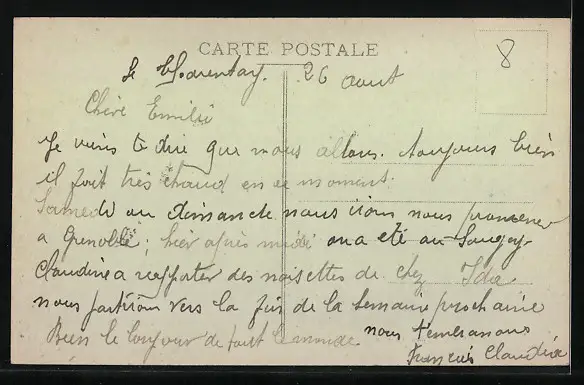 CARTE POSTALE
8
le 26 Aout
Chère Emilie
Je viens te dire que nous allons toujours bien
il fait très chaud en ce moment.
Samedi ou dimanche nous irons nous promener
a Grenoble; hier après midi on a été au
Claudine a rapporter des noisettes de chez Ida
nous partirons vers la fin de la semaine prochaine
Bien le bonjour de tout le monde nous t'embrassons
Francis Claudine